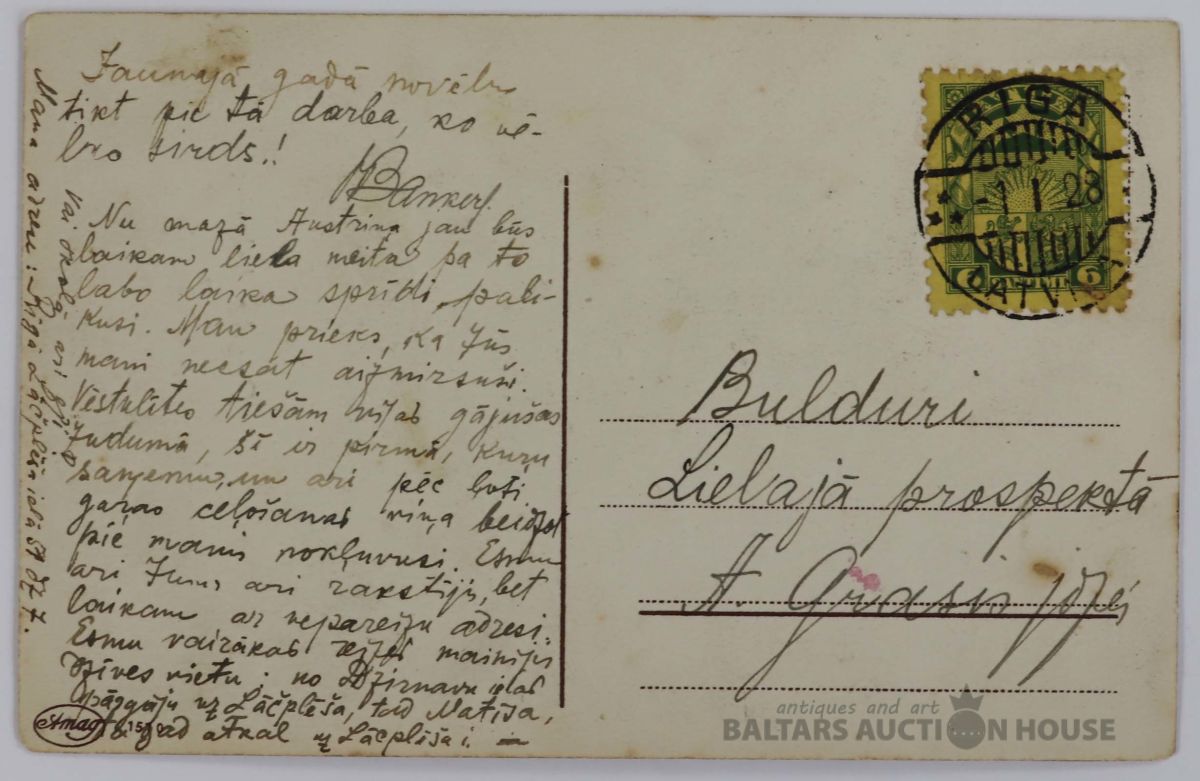 Jaunajā gadā novēlu
tikt pie tā darba, ko vē-
lao sirds.!
Nu mazā Austriņa jau būs
laikam liela meita pa to
labo laika sprīdi pali-
kusi. Man prieks, ka Jūs
mani neesat aizmirsuši.
Vēstulītes tiešām viņas gājušas
zudumā, šī ir pirmā, kuru
saņemu, un arī pēc ļoti
garas ceļošanas viņa beidzot
pie manis nokļuvusi. Esmu
arī Jums arī rakstījis, bet
laikam ar nepareizu adresi.
Esmu vairākas reizes mainījis
dzīves vietu: no Dzirnavu ielas
pārgāju uz Lāčplēša, tad Matīsa,
tad atkal uz Lāčplēša i. —
Mana adrese: Rīgā Lāčplēša ielā 59 dz 7.
Amag
RIGA
-1 I 28
LATVIJA
LATVIJA
6 6
Bulduri
Lielajā prospektā
A. Grasis
antiques and art
BALTARS AUCTION HOUSE